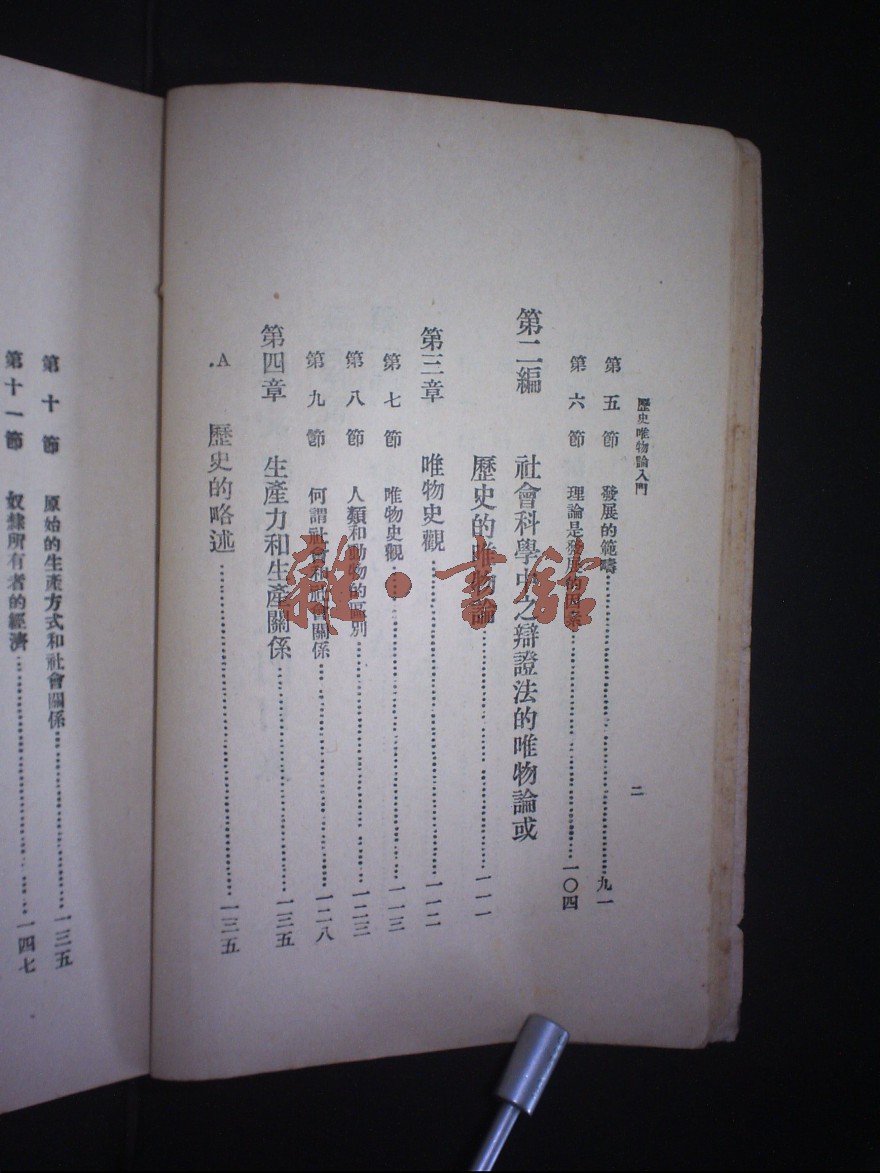 歷史唯物論入門
二
第五節 發展的範疇……九一
第六節 理論是發展的因素……一〇四
第二編 社會科學中之辯證法的唯物論或
歷史的唯物論……一一一
第三章 唯物史觀……一一二
第七節 唯物史觀……一一三
第八節 人類和動物的區別……一二三
第九節 何謂社會和社會關係……一二八
第四章 生產力和生產關係……一三五
A. 歷史的略述……一三五
第十節 原始的生產方式和社會關係……一三五
第十一節 奴隸所有者的經濟……一四七
雜·書館